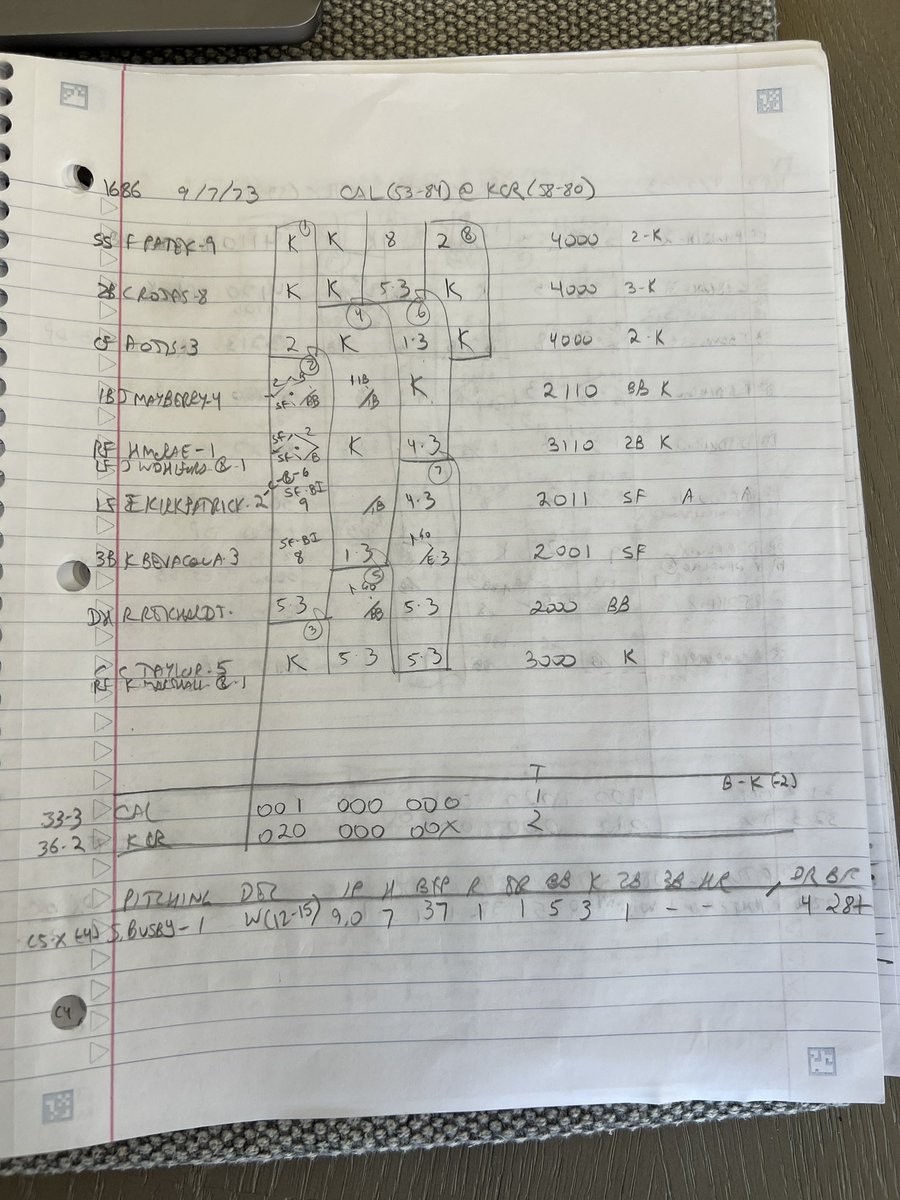 1686 9/7/73 CAL (53-84) @ KCR (58-80)
SS F PATEK-9 K ① K 8 2 ⑧ 4000 2-K
2B C ROJAS-8 K K 5.3 K 4000 3-K
CF A OTIS-3 2 ④ K ⑥ 1.3 K 4000 2-K
1B J MAYBERRY-4 ② BB 1B K 2110 BB K
RF H McRAE-1 K 4.3 3110 2B K
LF J WOHLFORD
LF E KIRKPATRICK-2 SF-BI 9 4.3 ⑦ 2011 SF A A
3B K BEVACQUA-3 SF-BI 8 1.3 E.3 2001 SF
DH R REICHARDT- 5.3 ⑤ BB 5.3 2000 BB
C C TAYLOR-5 ③ K 5.3 5.3 3000 K
RF K MARSHALL
T B-K (-2)
33-3 CAL 001 000 000 1
36-2 KCR 020 000 00X 2
PITCHING DEC IP H BFP R ER BB K 2B 3B HR DR BR
S. BUSBY-1 W(12-15) 9.0 7 37 1 1 5 3 1 - - 4 28+
C4